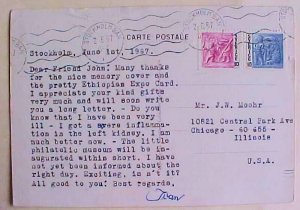 CARTE POSTALE
Stockholm, June 1st, 1947.
Dear Friend John. Many thanks
for the nice memory cover and
the pretty Ethiopian Expo Card.
I appreciate your kind gifts
very much and will soon write
you a lose letter. - Do you
know that I have been very
ill - I got a syere inflamma-
tion in the left kidney. I am
much better now. - The little
philatelic museum will be in-
augurated within short. I have
not yet been informed about the
right day. Exciting, is an't it?
All good to you! Best regards,
Mr. J.W. Moohr
10821 Central Park Ave
Chicago - 40 655 -
Illinois
U.S.A.